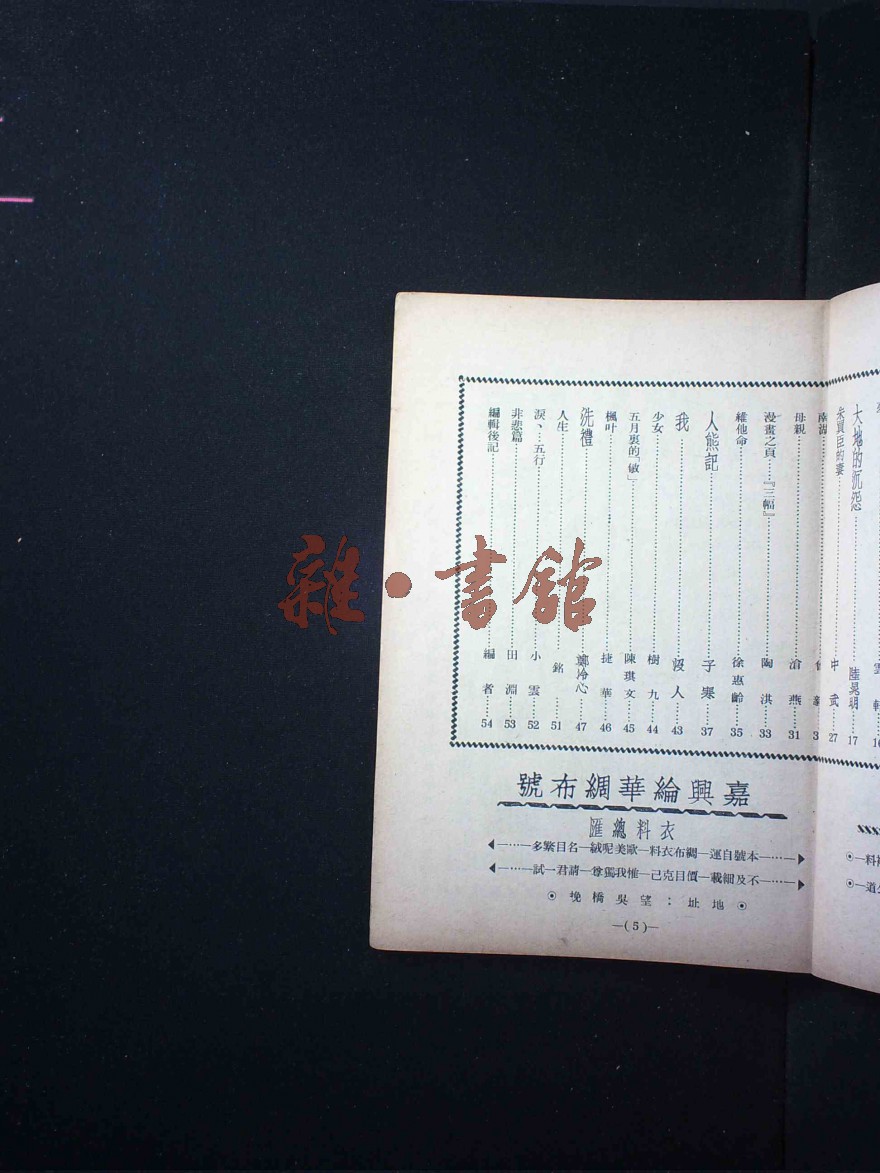 大地的沉怨……陸昊明……17
朱買臣的妻……中武……27
南湖……
母親……滄燕……31
漫畫之頁……『三幅』……陶淇……33
維他命……徐惠齡……35
人熊記……子寒……37
我……沒人……43
少女……樹九……44
五月裏的「敏」……陳琪文……45
楓叶……捷華……46
洗禮……鄭冷心……47
人生……銘……51
淚、……五行……小雲……52
非悲篇……田淵……53
編輯後記……編者……54
嘉興綸華綢布號
衣料總匯
本號自運—綢布衣料—歐美呢絨—名目繁多
不及細載—價目克己—惟我獨尊—請君一試
地址：望吳橋挽
—(5)—
雜·書館